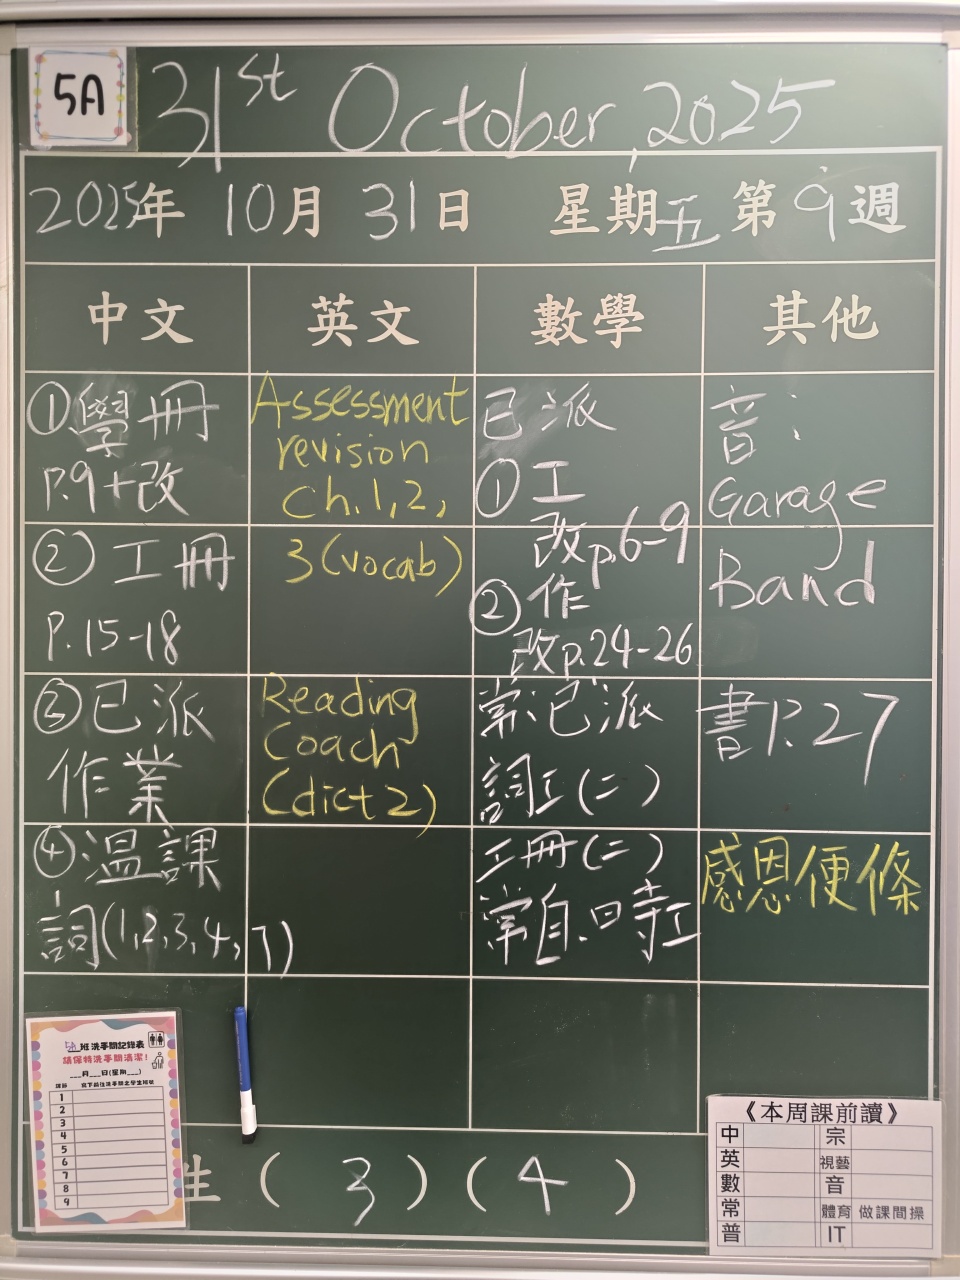 5A
31st October, 2025
2025年 10月 31日 星期五 第9週
中文
①學冊
P.9+改
②工冊
P.15-18
③已派
作業
④溫課
詞(1,2,3,4,7)
英文
Assessment
revision
Ch.1,2,
3(vocab)
Reading
Coach
(dict 2)
數學
已派
①工
改p.6-9
②作
改p.24-26
常:已派
詞工(二)
工冊(二)
常自.日時工
其他
音:
Garage
Band
書P.27
感恩便條
生(3)(4)
5A班洗手間記錄表
請保持洗手間清潔!
___月___日(星期___)
課節
1
2
3
4
5
6
7
8
9
《本周課前讀》
中 宗
英 視藝
數 音
常 體育 做課間操
普 IT